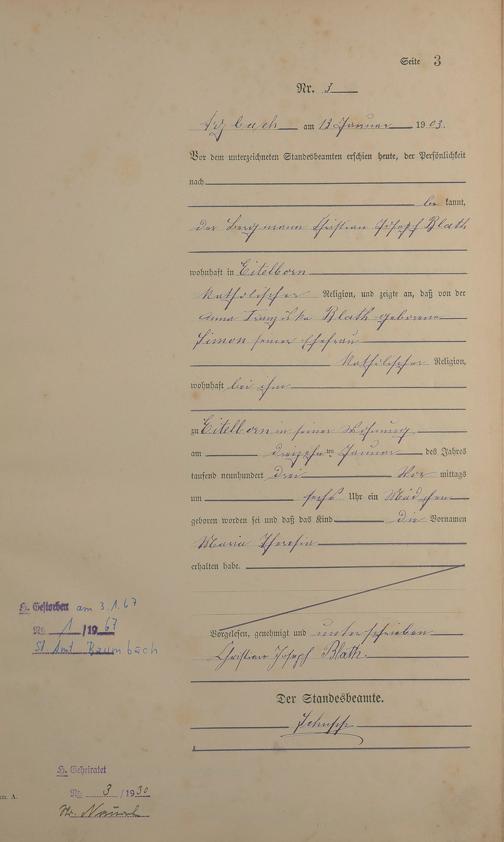 Seite 3
Nr. 3
Arzbach am 13 Januar 1903.
Vor dem unterzeichneten Standesbeamten erschien heute, der Persönlichkeit
nach
be kannt,
der Bergmann Christian Joseph Blath
wohnhaft in Eitelborn
katholischer Religion, und zeigte an, daß von der
Anna Franziska Blath geborene
Simon seiner Ehefrau
katholischer Religion,
wohnhaft bei ihm
zu Eitelborn in seiner Wohnung
am dreizehnten Januar des Jahres
tausend neunhundert drei Vor mittags
um sechs Uhr ein Mädchen
geboren worden sei und daß das Kind die Vornamen
Maria Theresia
erhalten habe.
Vorgelesen, genehmigt und unterschrieben
Christian Joseph Blath.
Der Standesbeamte.
H. Gestorben am 3.1.67
Nr. 1 /1967
St. Amt Baumbach
H. Geheiratet
Nr. 3 /1930